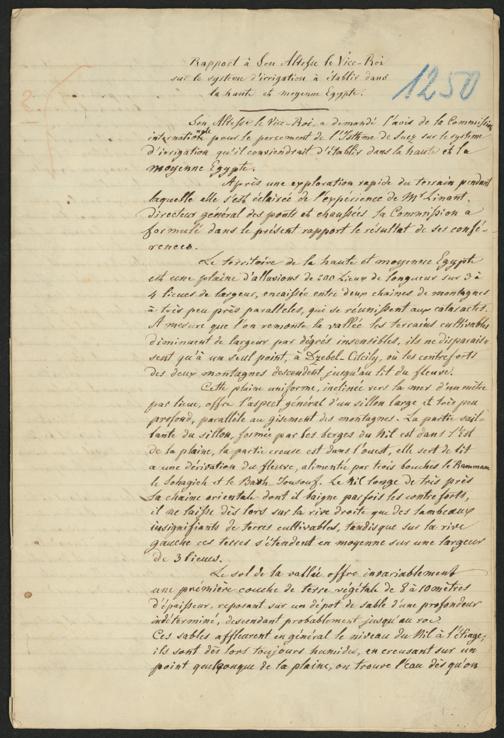 Rapport à Son Altesse le Vice-Roi
sur le système d'irrigation à établir dans
la haute et moyenne Egypte.
1250
Son Altesse le Vice-Roi a demandé l'avis de la Commission
internationale pour le percement de l'Isthme de Suez sur le système
d'irrigation qu'il consiendrait d'établir dans la haute et la
moyenne Egypte.
Après une exploration rapide du terrain pendant
laquelle elle s'est éclairée de l'expérience de Mr Linant,
directeur général des ponts et chaussées la Commission a
formulé dans le présent rapport le résultat de ses confé-
rences.
Le territoire de la haute et moyenne Egypte
est une plaine d'allusions de 200 Lieux de longueur sur 3 à
4 lieues de largeur, encaissée entre deux chaines de montagnes
à très peu près paralleles, qui se réunissent aux cataractes.
A mesure que l'on remonte la vallée les terrains cultivables
diminuent de largeur par dégrés insensibles, ils ne disparais-
sent qu'à un seul point, à Dzebel Cilcily, où les contreforts
des deux montagnes descendent jusqu'au lit du fleuve.
Cette plaine uniforme, inclinée vers la mer d'un mètre
par lieue, offre l'aspect général d'un sillon large et très peu
profond, parallèle au gisement des montagnes. La partie sail-
lante du sillon, formée par les berges du Nil est dans l'Est
de la plaine, la partie creuse est dans l'ouest, elle sert de lit
a une dérivation du fleuve, alimentée par trois bouches le
le Sohagieh et le Bahh. Jousouf. Le Nil longe de très près
sa chaine orientale dont il baigne parfois les contreforts,
il ne laisse dès lors sur la rive droite que des lambeaux
insignifiants de terres cultivables, tandisque sur la rive
gauche ces terres s'étendent en moyenne sur une largeur
de 3 lieues.
Le sol de la vallée offre invariablement
une première couche de terre végétale de 8 à 10 mètres
d'épaisseur, reposant sur un dépot de sable d'une profondeur
indéterminé, descendant probablement jusqu'au roc.
Ces sables affleurent en général le niveau du Nil à l'étiage;
ils sont dès lors toujours humides, en creusant sur un
point quelconque de la plaine, on trouve l'eau dès qu'on